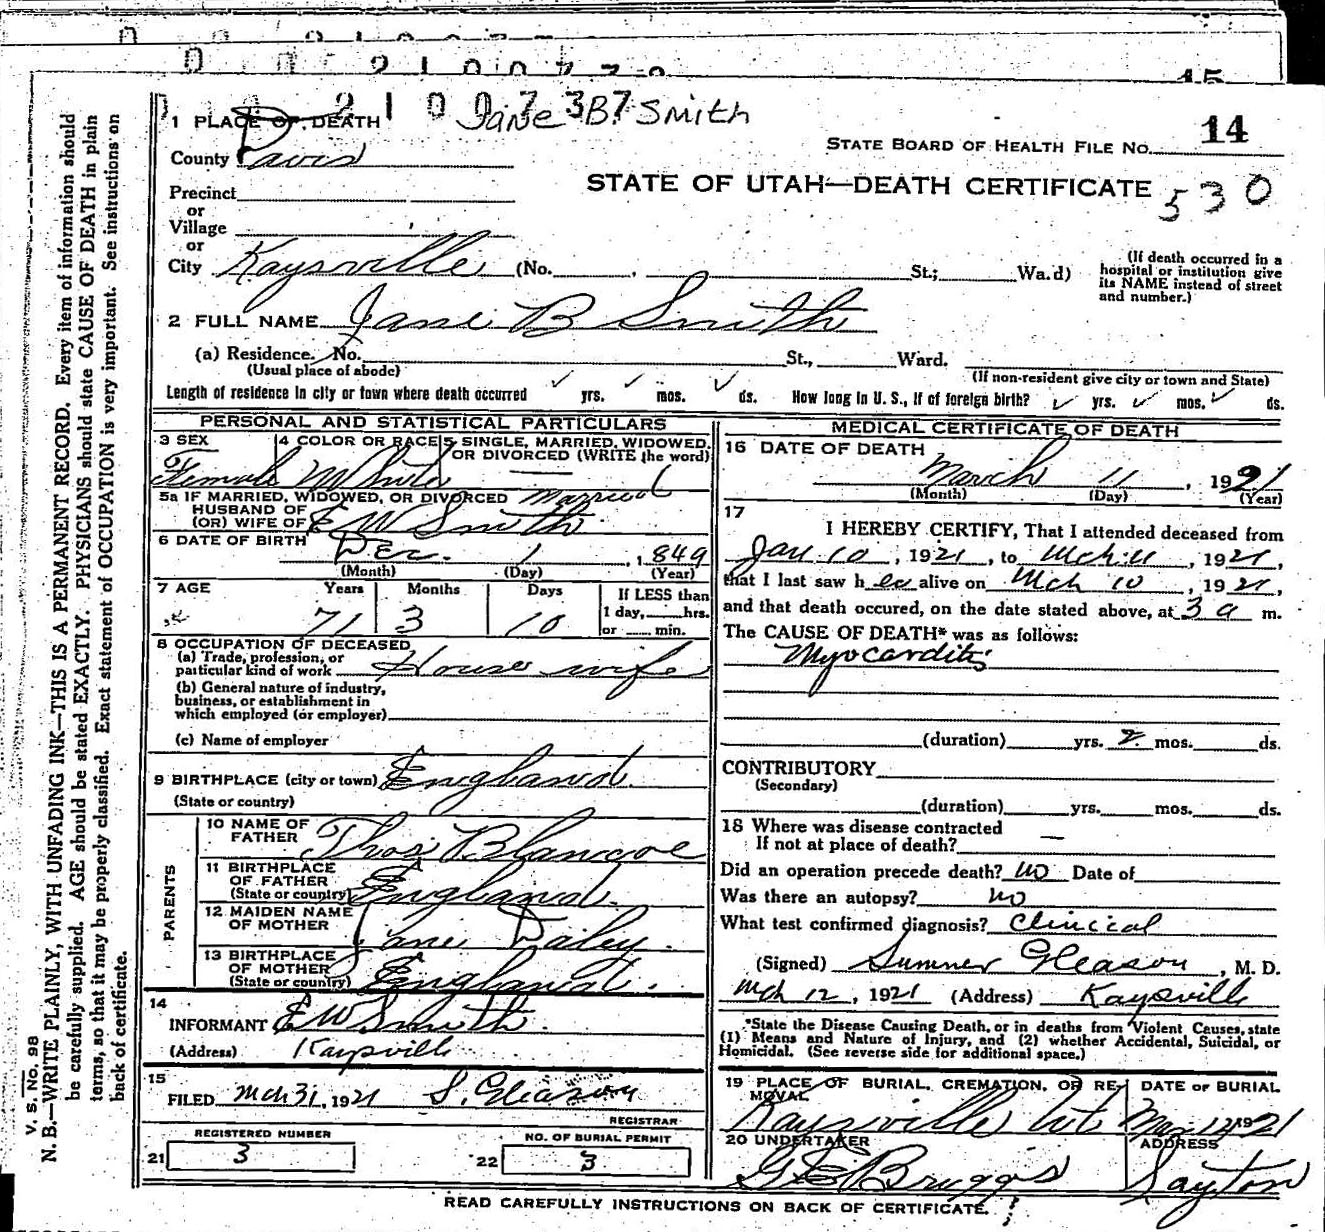 2100737 Jane B. Smith
1 PLACE OF DEATH
14
STATE BOARD OF HEALTH FILE No.
County Davis
STATE OF UTAH—DEATH CERTIFICATE
530
Precinct
or
Village
or
City Kaysville (No. , St.; Wa.d)
(If death occurred in a
hospital or institution give
its NAME instead of street
and number.)
2 FULL NAME Jane B Smith
(a) Residence. No. St., Ward.
(Usual place of abode) (If non-resident give city or town and State)
Length of residence in city or town where death occurred yrs. mos. ds. How long in U. S., if of foreign birth? yrs. mos. ds.
PERSONAL AND STATISTICAL PARTICULARS
3 SEX
Female
4 COLOR OR RACE
White
5 SINGLE, MARRIED, WIDOWED,
OR DIVORCED (WRITE the word)
Married
5a IF MARRIED, WIDOWED, OR DIVORCED
HUSBAND OF
(OR) WIFE OF E W Smith
6 DATE OF BIRTH Dec. 1, 1849
(Month) (Day) (Year)
7 AGE Years Months Days
71 3 10
If LESS than
1 day, hrs.
or min.
8 OCCUPATION OF DECEASED
(a) Trade, profession, or
particular kind of work House wife
(b) General nature of industry,
business, or establishment in
which employed (or employer)
(c) Name of employer
9 BIRTHPLACE (city or town) England
(State or country)
PARENTS
10 NAME OF
FATHER Thos Blamore
11 BIRTHPLACE
OF FATHER
(State or country) England.
12 MAIDEN NAME
OF MOTHER Jane Dailey.
13 BIRTHPLACE
OF MOTHER
(State or country) England.
14
INFORMANT E W Smith.
(Address) Kaysville
15
FILED Mch 31, 1921 S. Gleason
REGISTRAR
REGISTERED NUMBER
21 3
NO. OF BURIAL PERMIT
22 3
MEDICAL CERTIFICATE OF DEATH
16 DATE OF DEATH
March 11, 1921
(Month) (Day) (Year)
17
I HEREBY CERTIFY, That I attended deceased from
Jan 10, 1921, to Mch 11, 1921,
that I last saw her alive on Mch 10, 1921,
and that death occured, on the date stated above, at 3 a m.
The CAUSE OF DEATH* was as follows:
Myocarditis
(duration) yrs. 2 mos. ds.
CONTRIBUTORY
(Secondary)
(duration) yrs. mos. ds.
18 Where was disease contracted
If not at place of death? —
Did an operation precede death? no Date of
Was there an autopsy? no
What test confirmed diagnosis? Clinical
(Signed) Sumner Gleason, M. D.
Mch 12, 1921 (Address) Kaysville
*State the Disease Causing Death, or in deaths from Violent Causes, state
(1) Means and Nature of Injury, and (2) whether Accidental, Suicidal, or
Homicidal. (See reverse side for additional space.)
19 PLACE OF BURIAL, CREMATION, OR RE-
MOVAL
Kaysville Ut
DATE OF BURIAL
Mar 12 1921
20 UNDERTAKER
ADDRESS
Layton
READ CAREFULLY INSTRUCTIONS ON BACK OF CERTIFICATE.
V. S. No. 98
N. B.—WRITE PLAINLY, WITH UNFADING INK—THIS IS A PERMANENT RECORD. Every item of information should
be carefully supplied. AGE should be stated EXACTLY. PHYSICIANS should state CAUSE OF DEATH in plain
terms, so that it may be properly classified. Exact statement of OCCUPATION is very important. See instructions on
back of certificate.